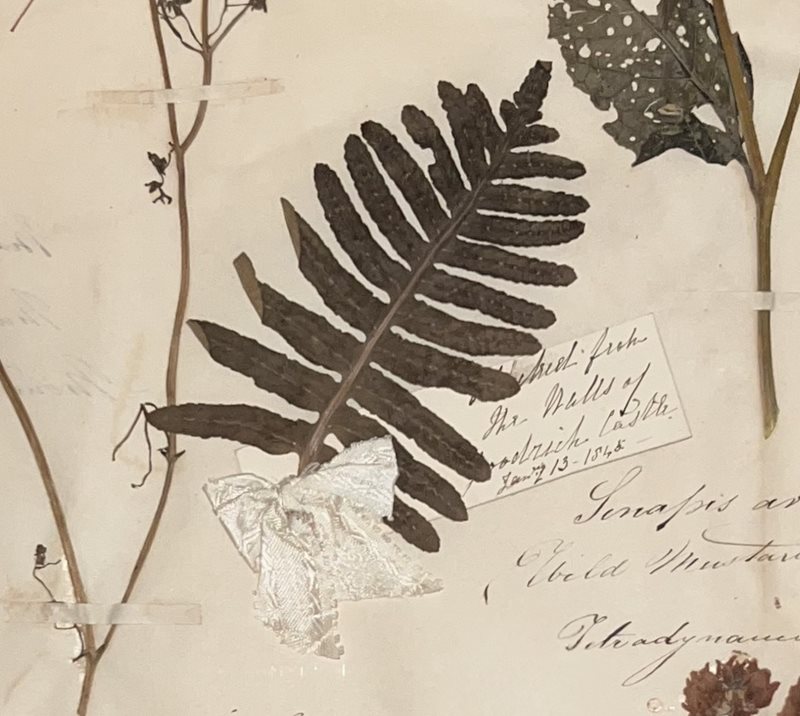 from
The Walls of
Castle.
Jany 13 - 1848 -
Sinapis ar
Wild Mustar
Tetradynam